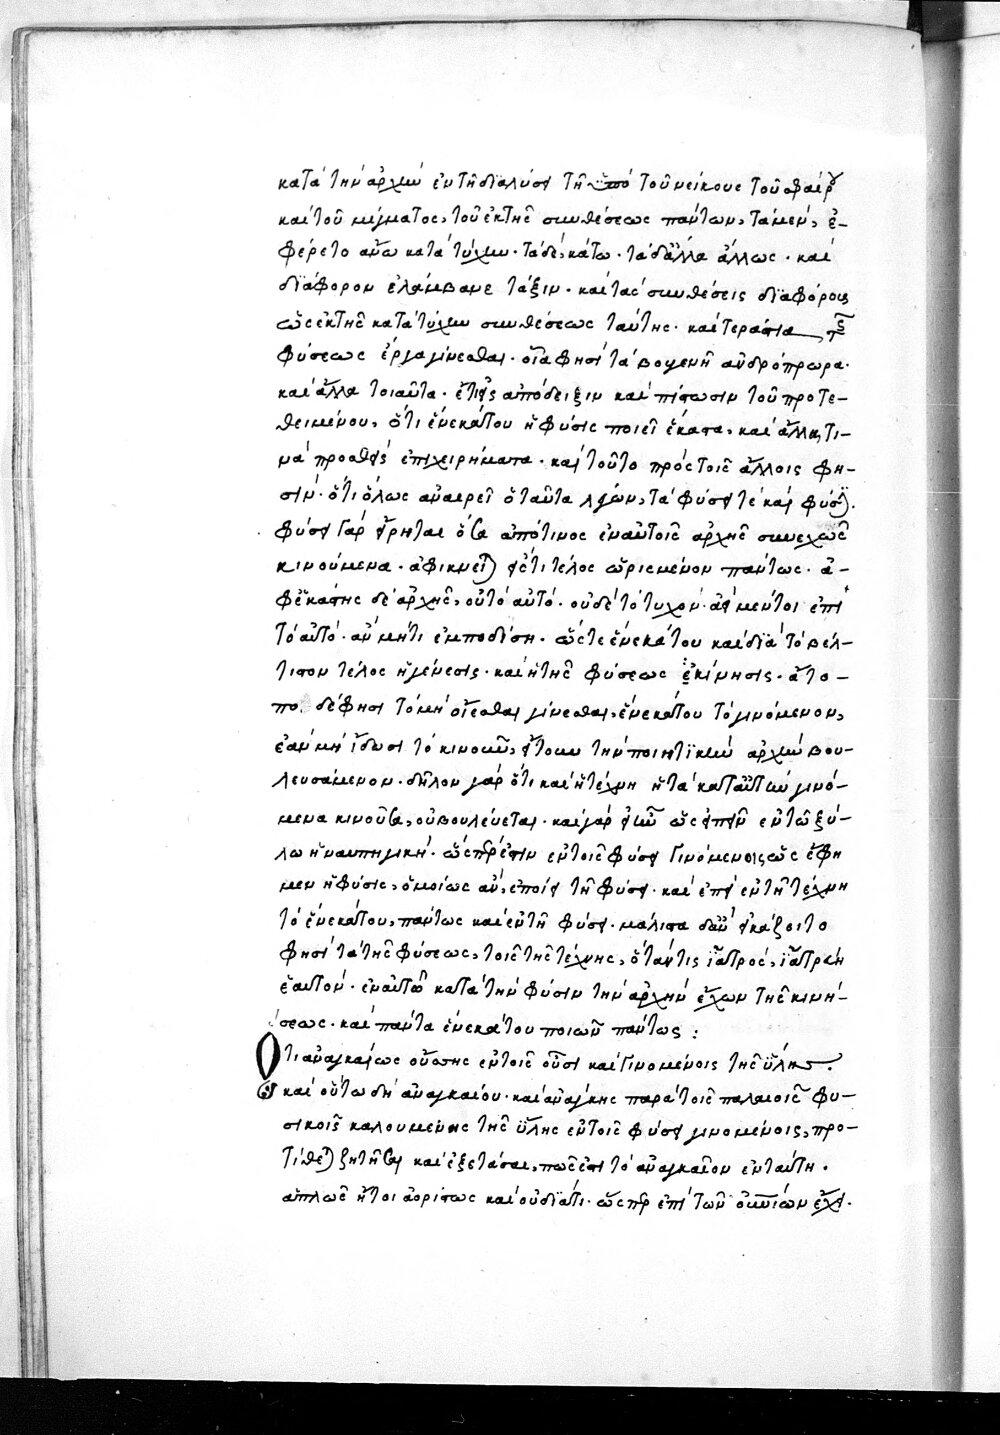 κατὰ τὴν ἀρχὴν ἐν τῇ διαλύσει τῇ ὑπὸ τοῦ νείκους τοῦ σφαίρου
καὶ τοῦ μίγματος, τοῦ ἐκ τῆς συνθέσεως πάντων, τὰ μὲν, ἐ-
φέρετο ἄνω κατὰ τύχην· τὰ δὲ, κάτω· τὰ δ' ἄλλα ἄλλως· καὶ
διάφορον ἐλάμβανε τάξιν· καὶ τὰς συνθέσεις διαφόρους
ὡς ἐκ τῆς κατὰ τύχην συνθέσεως ταύτης· καὶ τεράστια τῆς
φύσεως ἔργα γίνεσθαι· οἷα φησὶ τὰ βουγενῆ ἀνδρόπρωρα·
καὶ ἄλλα τοιαῦτα· ἔτι εἰς ἀπόδειξιν καὶ πίστωσιν τοῦ προτε-
θειμένου, ὅτι ἕνεκά του ἡ φύσις ποιεῖ ἕκαστα, καὶ ἄλλα τι-
νὰ προσθεὶς ἐπιχειρήματα· καὶ τοῦτο πρὸς τοῖς ἄλλοις φη-
σίν· ὅτι ὅλως ἀναιρεῖ ὁ ταῦτα λέγων, τὰ φύσει τὲ καὶ φύσιν.
φύσει γὰρ εἴρηται ὅσα ἀπό τινος ἐν αὐτοῖς ἀρχῆς συνεχῶς
κινούμενα· ἀφικνεῖται εἰς τι τέλος ὡρισμένον πάντως· ἀ-
φ' ἑκάστης δὲ ἀρχῆς, οὐ τὸ αὐτό· οὐδὲ τὸ τυχόν· ἀεὶ μέντοι ἐπὶ
τὸ αὐτό· ἂν μή τι ἐμποδίσῃ· ὥστε ἕνεκά του καὶ διὰ τὸ βέλ-
τιστον τέλος ἡ γένεσις· καὶ ἡ τῆς φύσεως ἐκίνησις· ἄτο-
πο δέ φησι τὸ μὴ οἴεσθαι γίνεσθαι, ἕνεκά του τὸ γινόμενον,
ἐὰν μὴ ἴδωσι τὸ κινοῦν, ἤτουν τὴν ποιητικὴν ἀρχὴν βου-
λευσάμενον· δῆλον γὰρ ὅτι καὶ ἡ τέχνη ἡ τὰ κατ' αὐτὴν γινό-
μενα κινοῦσα, οὐ βουλεύεται· καὶ γὰρ εἰ ἦν ὡς εἰπεῖν ἐν τῷ ξύ-
λῳ ἡ ναυπηγική· ὥσπερ ἐστὶν ἐν τοῖς φύσει γινομένοις ὡς ἔφη
μεν ἡ φύσις, ὁμοίως ἂν, ἐποίει τῇ φύσει· καὶ ἐπεὶ ἐν τῇ τέχνῃ
τὸ ἕνεκά του, πάντως καὶ ἐν τῇ φύσει· μάλιστα δ' ἂν εἰκάζοιτο
φησὶ τὰ τῆς φύσεως, τοῖς τῆς τέχνης, ὅταν τις ἰατρὸς, ἰατρεύῃ
ἑαυτόν· ἐν αὑτῷ κατὰ τὴν φύσιν τὴν ἀρχὴν ἔχων τῆς κινή-
σεως· καὶ πάντα ἕνεκά του ποιῶν πάντως :
Ὅτι ἀναγκαίως οὔσης ἐν τοῖς οὖσι καὶ γινομένοις τῆς ὕλης.
καὶ οὕτω δὴ ἀναγκαίου· καὶ ἀνάγκης παρὰ τοῖς παλαιοῖς φυ-
σικοῖς καλουμένης τῆς ὕλης ἐν τοῖς φύσει γινομένοις, προ-
τίθεται ζητῆσαι καὶ ἐξετάσαι, πῶς ἐστὶ τὸ ἀναγκαῖον ἐνταύτῃ.
ἁπλῶς ἤτοι ἀορίστως καὶ οὐ διά τι· ὥσπερ ἐπὶ τῶν οὐσιῶν ἔχει·